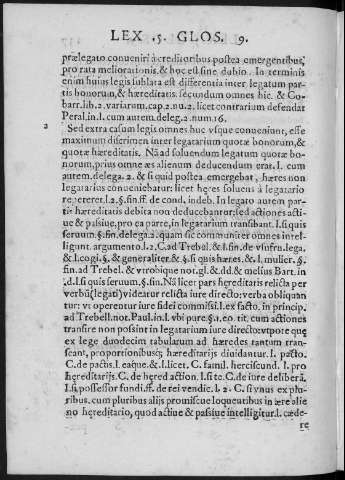 LEX .5. GLOS. 9.
prælegato conueniri à creditoribus postea emergentibus,
pro rata meliorationis, & hoc est sine dubio. In terminis
enim huius legis sublata est differentia inter legatum par-
tis bonorum, & hæreditatis. secundum omnes hic. & Co-
barr. lib. 2. variarum. cap. 2. nu. 2. licet contrarium defendat
Peral. in. l. cum autem. deleg. 2. num. 16.
2 Sed extra casum legis omnes huc vsque conueniunt, esse
maximum discrimen inter legatarium quotæ bonorum, &
quotæ hæreditatis. Nã ad soluendum legatum quotæ bo-
norum, prius omne æs alienum deducendum erat. l. cum
autem. delega. 2. & si quid postea emergebat, hæres non
legatarius conueniebatur: licet heres soluens à legatario
repereret. l. 2. §. fin. ff. de cond. indeb. In legato autem par-
tis hæreditatis debita non deducebantur: sed actiones acti-
uæ & passiuæ, pro ea parte, in legatarium transibant. l. si quis
seruum. §. fin. delega. 2. quam sic communiter omnes intel-
ligunt. argumento. l. 2. C. ad Trebel. & l. fin. de vsufru. lega.
& l. cogi. §. & generaliter. & §. si quis hæres. &. l. mulier. §.
fin. ad Trebel. & vtrobique not. gl. & dd. & melius Bart. in
.d. l. si quis seruum. §. fin. Nã licet pars hereditatis relicta per
verbũ (legati) videatur relicta iure directo: verba obliquan
tur: vt operentur iure fidei commissi. l. ex facto. in princip.
ad Trebell. not. Paul. in. l. vbi pure. §. 1. eo. tit. cum actiones
transire non possint in legatarium iure directo: vtpote quæ
ex lege duodecim tabularum ad hæredes tantum tran-
seant, proportionibusq; hæreditarijs diuidantur. l. pacto.
C. de pactis. l. eaque. & l. licet. C. famil. herciscund. l. pro
hæreditarijs. C. de hered. action. l. si te. C. de iure deliberã.
l. si possessor fundi. ff. de rei vendic. l. 2. C. si vnus ex plu-
ribus. cum pluribus alijs promiscue loquentibus in ære alie
no hereditario, quod actiue & passiue intelligitur. l. cæde-
re